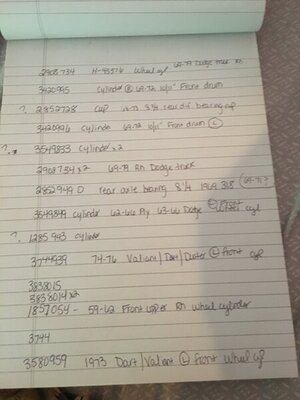 2908734 H-43576 Wheel cyl 69-79 Dodge truck RH
3420995 Cylinder Ⓡ 69-72 10/11" Front drum
? 2852728 Cup 8 3/4 rear dif bearing cup
3420996 Cylinder 69-72 10/11" Front drum Ⓛ
? 3549833 Cylinder x2
2908734 x2 69-79 RH Dodge truck
2852949 D rear axle bearing 8 1/4 1969 318
3549849 cylinder 62-66 Ply 63-66 Dodge cyl
? 1285993 cylinder
3744939 74-76 Valiant/Dart/Duster Ⓛ front cyl
3838015
3838014 x2
1857054 - 59-62 Front upper RH wheel cylinder
3744
3580959 1973 Dart/Valiant Ⓛ front wheel cyl